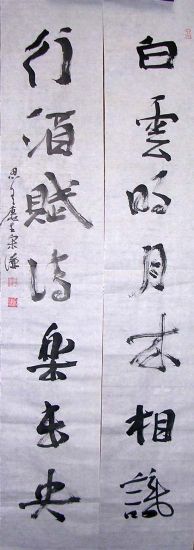 白雲明月才相識
行酒賦詩樂未央